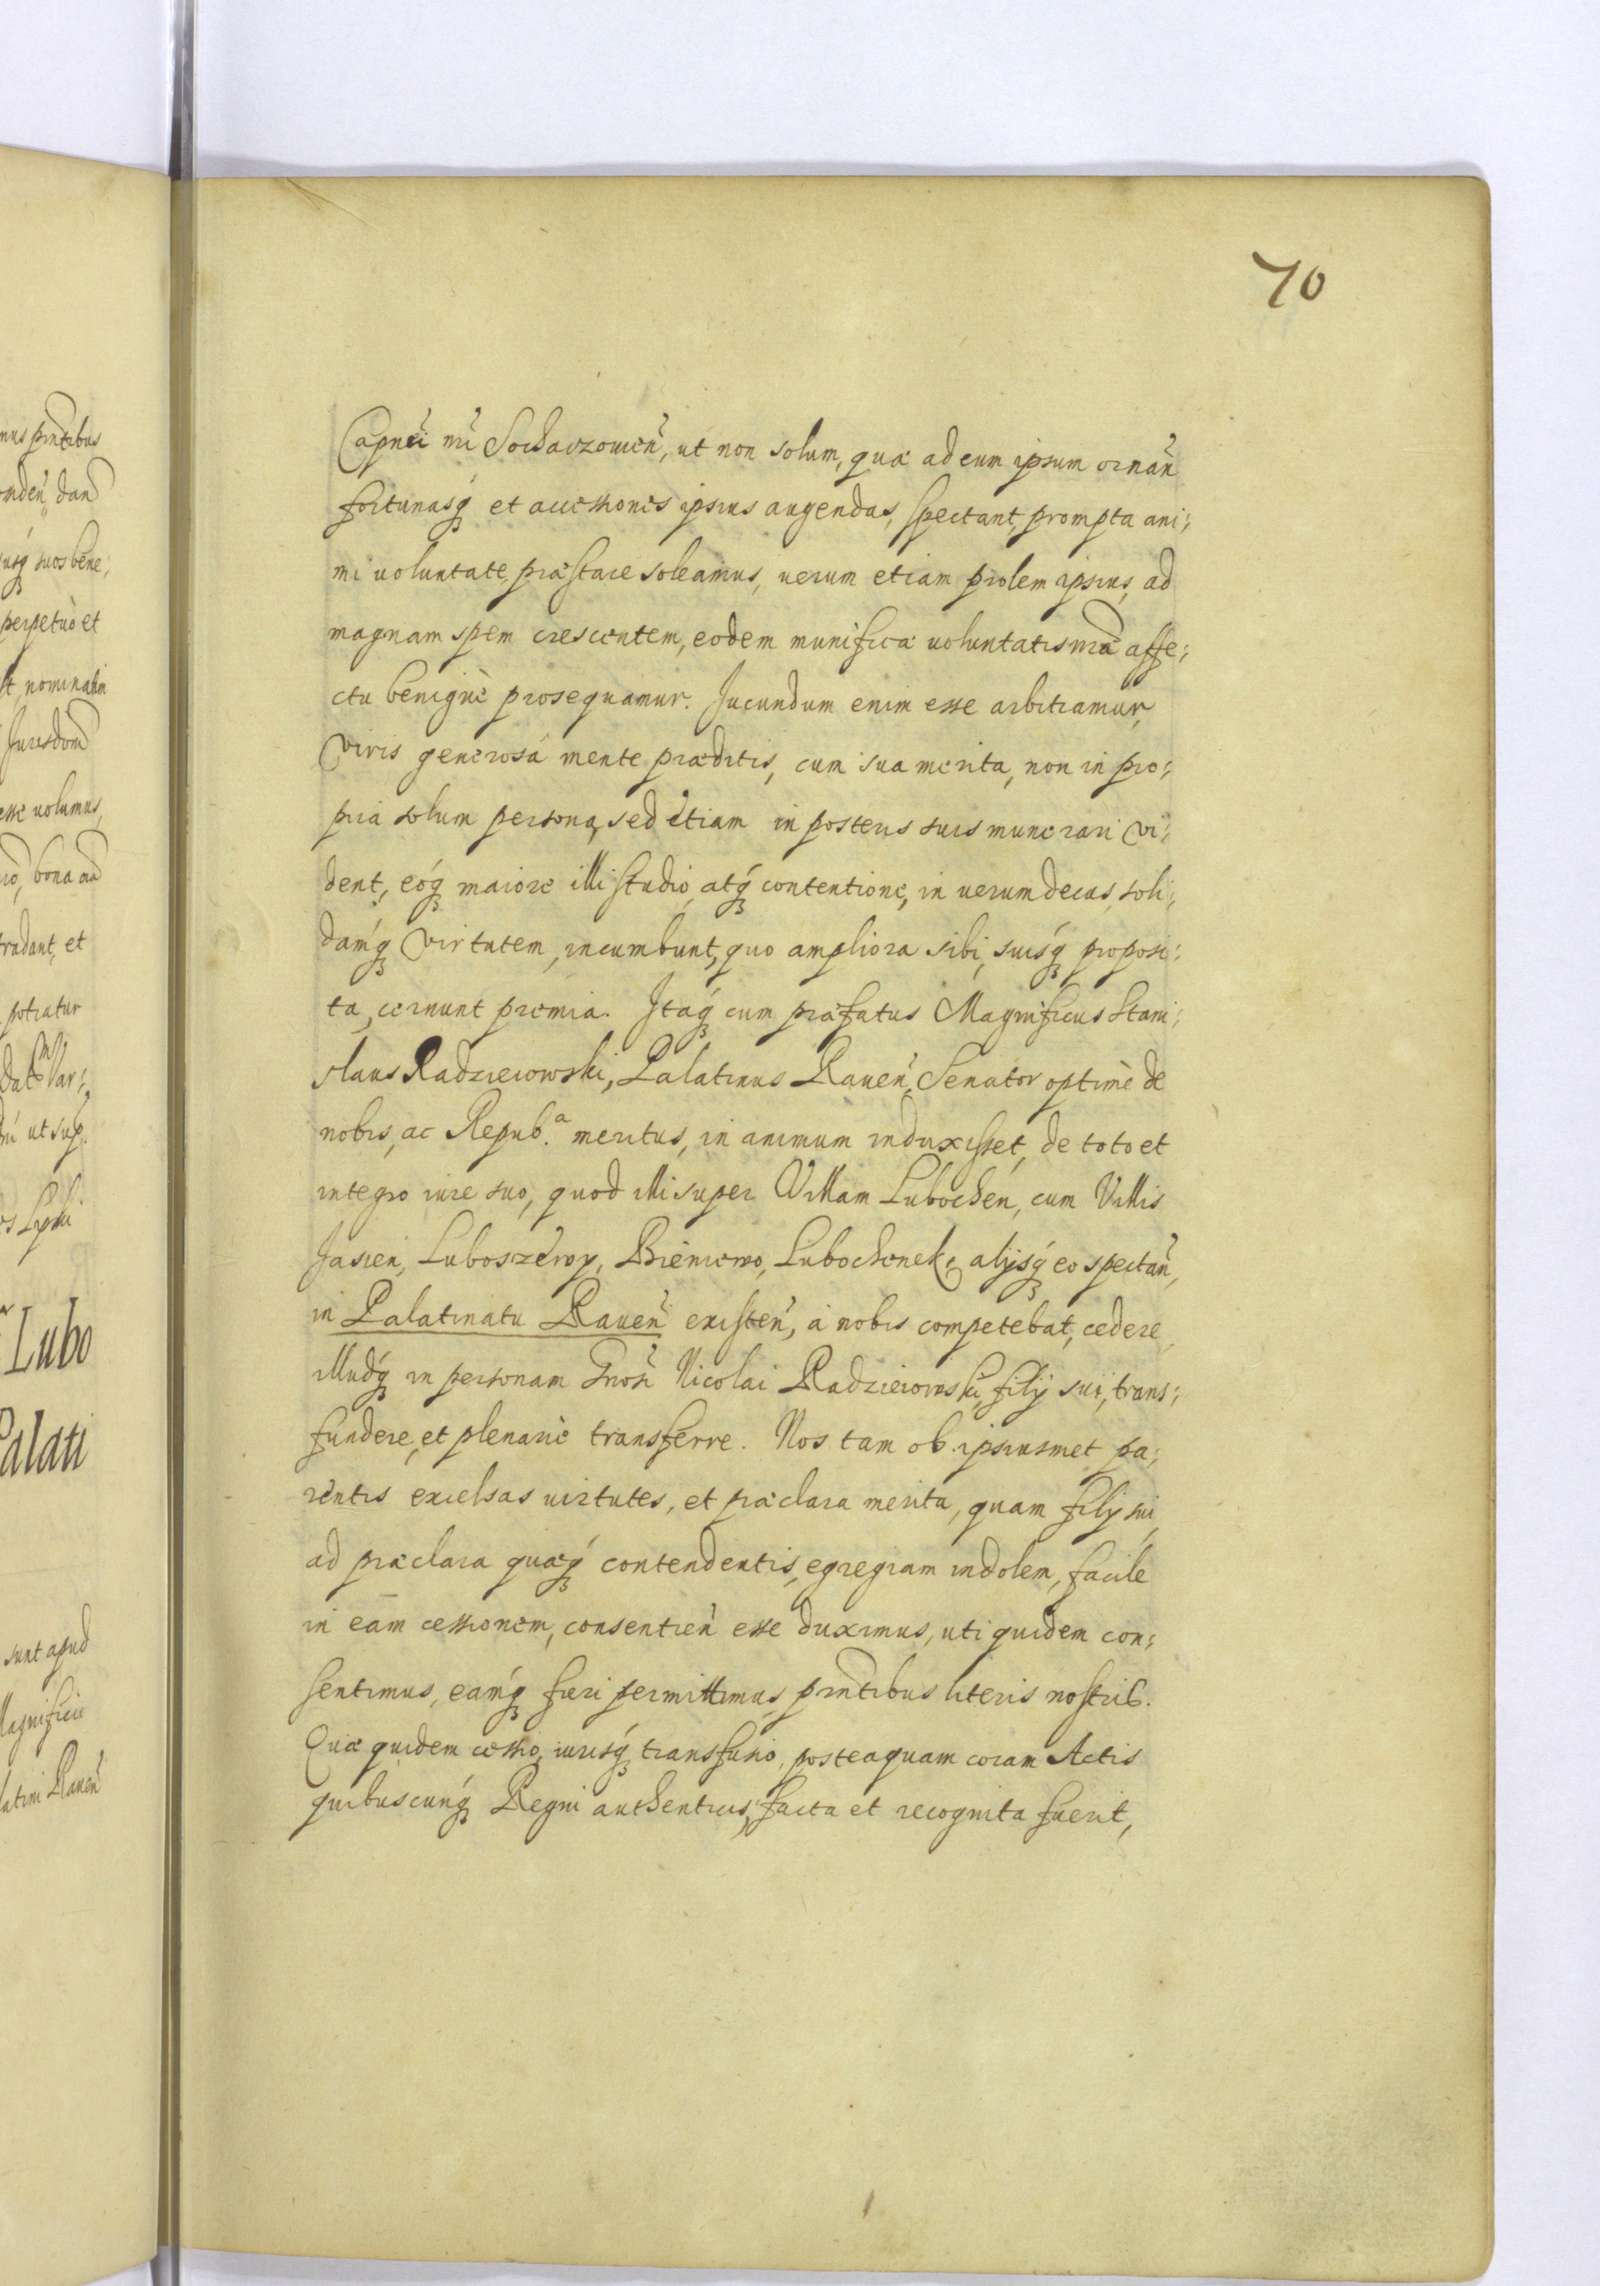 70
Capnei nri Sochaczouien̄, ut non solum, quæ ad eum ipsum ornan̄
fortunasq́ʒ et accessiones ipsius augendas, spectant, prompta ani:
mi voluntate, præstare soleamus, uerum etiam prolem ipsius, ad
magnam spem crescentem, eodem munificæ uoluntatis nr̄æ affe:
ctu benignè prosequamur. Jucundum enim esse arbitramur,
Viris generosâ mente præditis, cum sua merita, non in pro:
pria solum persona, sed etiam in posteris suis munerari vi:
dent, eóqʒ maiore illi studio, atqʒ́ contentione, in uerum decus, soli:
damqʒ́ Virtutem, incumbunt, quo ampliora sibi, suisqʒ́ proposi:
ta, cernunt premia. Itaqʒ́ cum præfatus Magnificus Stani:
slaus Radzieiowski, Palatinus Rauen̄, Senator optimè de
nobis, ac Repub.ª meritus, in animum induxisset, de toto et
integro iure suo, quod illi super Villam Lubochén, cum Villis
Jasień, Luboszéwy, Bieniewo, Lubochenek, alijsqʒ́ eo spectan̄,
in Palatinatu Rauen̄ existen̄, à nobis competebat, cedere,
illudqʒ́ in personam Gnosi Nicolai Radzieiowski, filij sui, trans:
fundere, et plenariè transferre. Nos tam ob ipsiusmet pa:
rentis excelsas uirtutes, et præclara merita, quam filij sui,
ad præclara quæqʒ́ contendentis, egregiam indolem, facile
in eam cessionem, consentien̄ esse duximus, uti quidem con:
sentimus, eamqʒ́ fieri permittimus, pn̄tibus literis nostris.
Quæ quidem cessio, iurisqʒ́ transfusio, posteaquam coram Actis
quibuscunqʒ́ Regni authenticis, facta et recognita fuerit,
perpetuò et
nominatim
esse uolumus,
tradant, et
potiatur
ut sup.
Lubo
Palati
sunt apud
Magnifici
Rauen̄